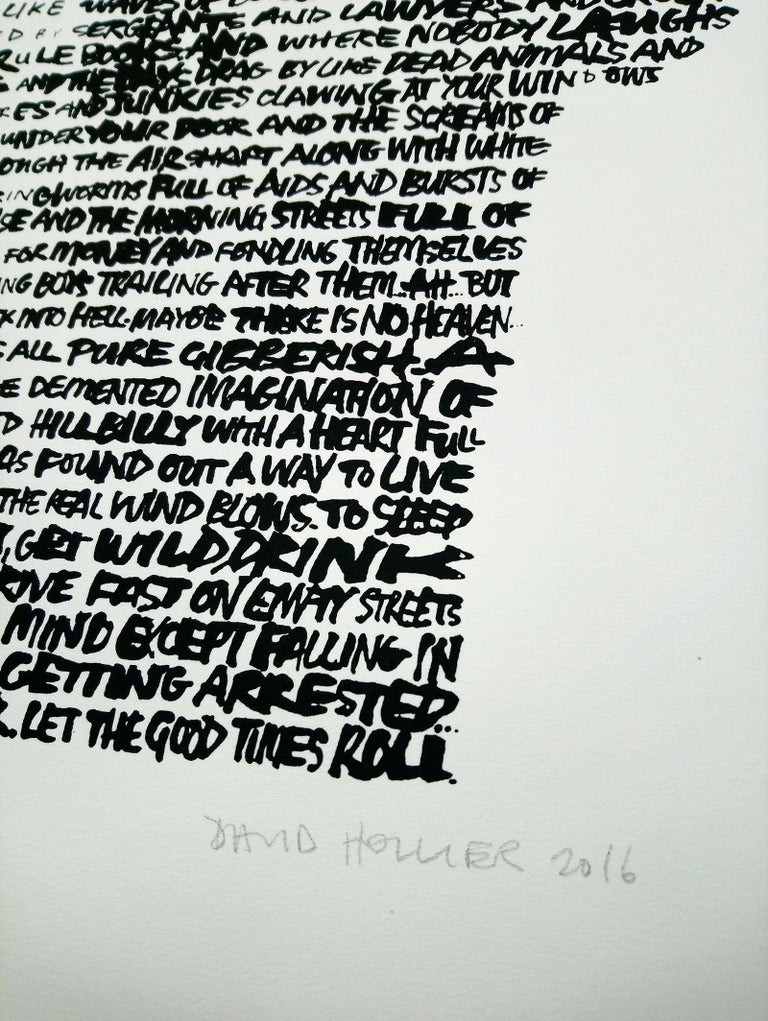 LIKE WAVES OF
BY SERGEANTS AND LAWYERS AND
RULE BOOKS AND WHERE NOBODY LAUGHS
AND THE DAYS DRAG BY LIKE DEAD ANIMALS AND
ES AND JUNKIES CLAWING AT YOUR WINDOWS
UNDER YOUR DOOR AND THE SCREAMS OF
OUGH THE AIRSHAFT ALONG WITH WHITE
INGWORMS FULL OF AIDS AND BURSTS OF
SE AND THE MORNING STREETS FULL OF
FOR MONEY AND FONDLING THEMSELVES
NG BOYS TRAILING AFTER THEM..AH... BUT
K INTO HELL-MAYBE THERE IS NO HEAVEN...
ALL PURE GIBBERISH.A
E DEMENTED IMAGINATION OF
D HILLBILLY WITH A HEART FULL
AS FOUND OUT A WAY TO LIVE
THE REAL WIND BLOWS. TO SLEEP
, GET WILD DRINK
RIVE FAST ON EMPTY STREETS
MIND EXCEPT FALLING IN
GETTING ARRESTED...
. LET THE GOOD TIMES ROLL.
DAVID HOLLIER 2016